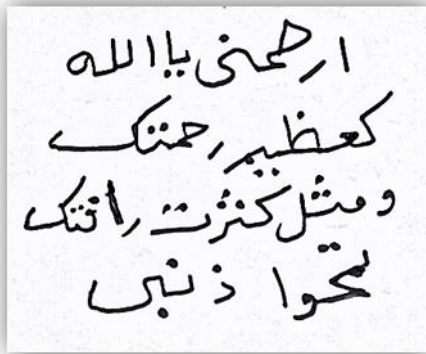 ارحمنى يا الله
كعظيم رحمتك
ومثل كثرت رافتك
تمحوا ذنبى